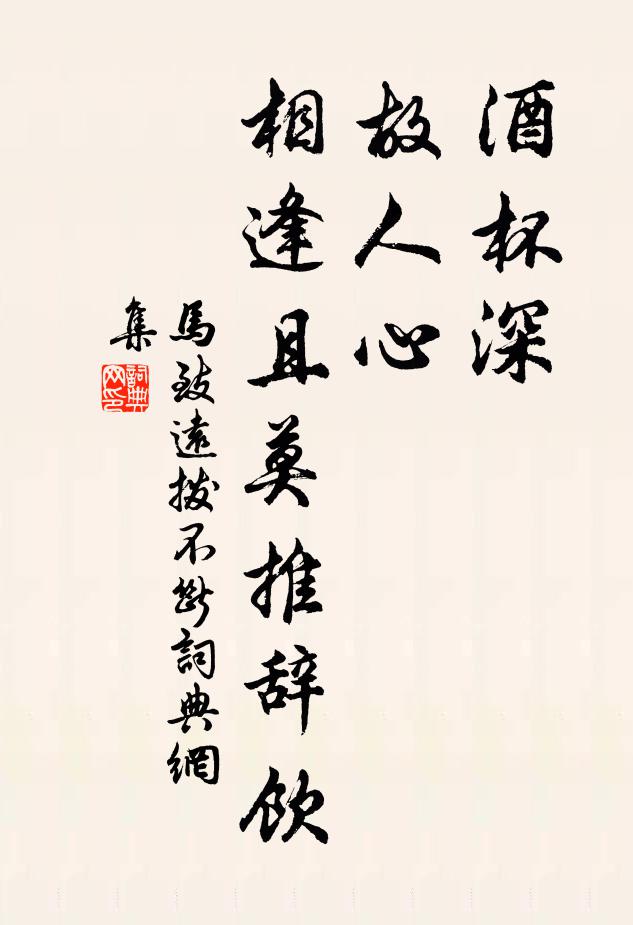 酒杯深
故人心
相逢且莫推辞飲
馬致遠撥不斷詞典網
集
詞典
网印